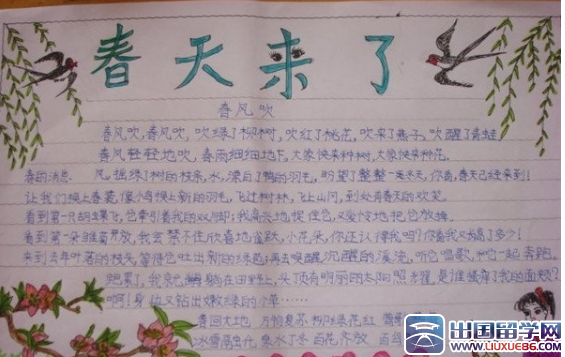 春天来了
春风吹
春风吹,春风吹,吹绿了柳树,吹红了桃花,吹来了燕子,吹醒了青蛙。
春风轻轻地吹,春雨细细地下,大家快来种树,大家快来种花。
春的消息: 风,摇绿了树的枝条,水,漂白了鸭的羽毛,盼望了整整一冬天,你看,春天已经来到!
让我们换上春装,像小鸟换上新的羽毛,飞过树林,飞上山冈,到处有春天的欢笑。
看到第一只蝴蝶飞,它牵引着我的双脚;我高兴地捉住它,又爱怜地把它放掉。
看到第一朵雏菊开放,我会禁不住欣喜地雀跃,小花朵,你还认得我吗?你看我又长高了多少!
来到去年叶落的枝头,等待它吐出新的绿苞;再去唤醒沉睡的溪流,听它唱歌,和它一起奔跑。
跑累了,我就躺在田野上,头顶有明丽的太阳照耀,是谁搔痒了我的面颊?
啊!身边又钻出嫩绿的小草……
春回大地 万物复苏 柳绿花红
冰雪融化 泉水丁冬 百花齐放
出国留学网
WWW.LIUXUE86.COM